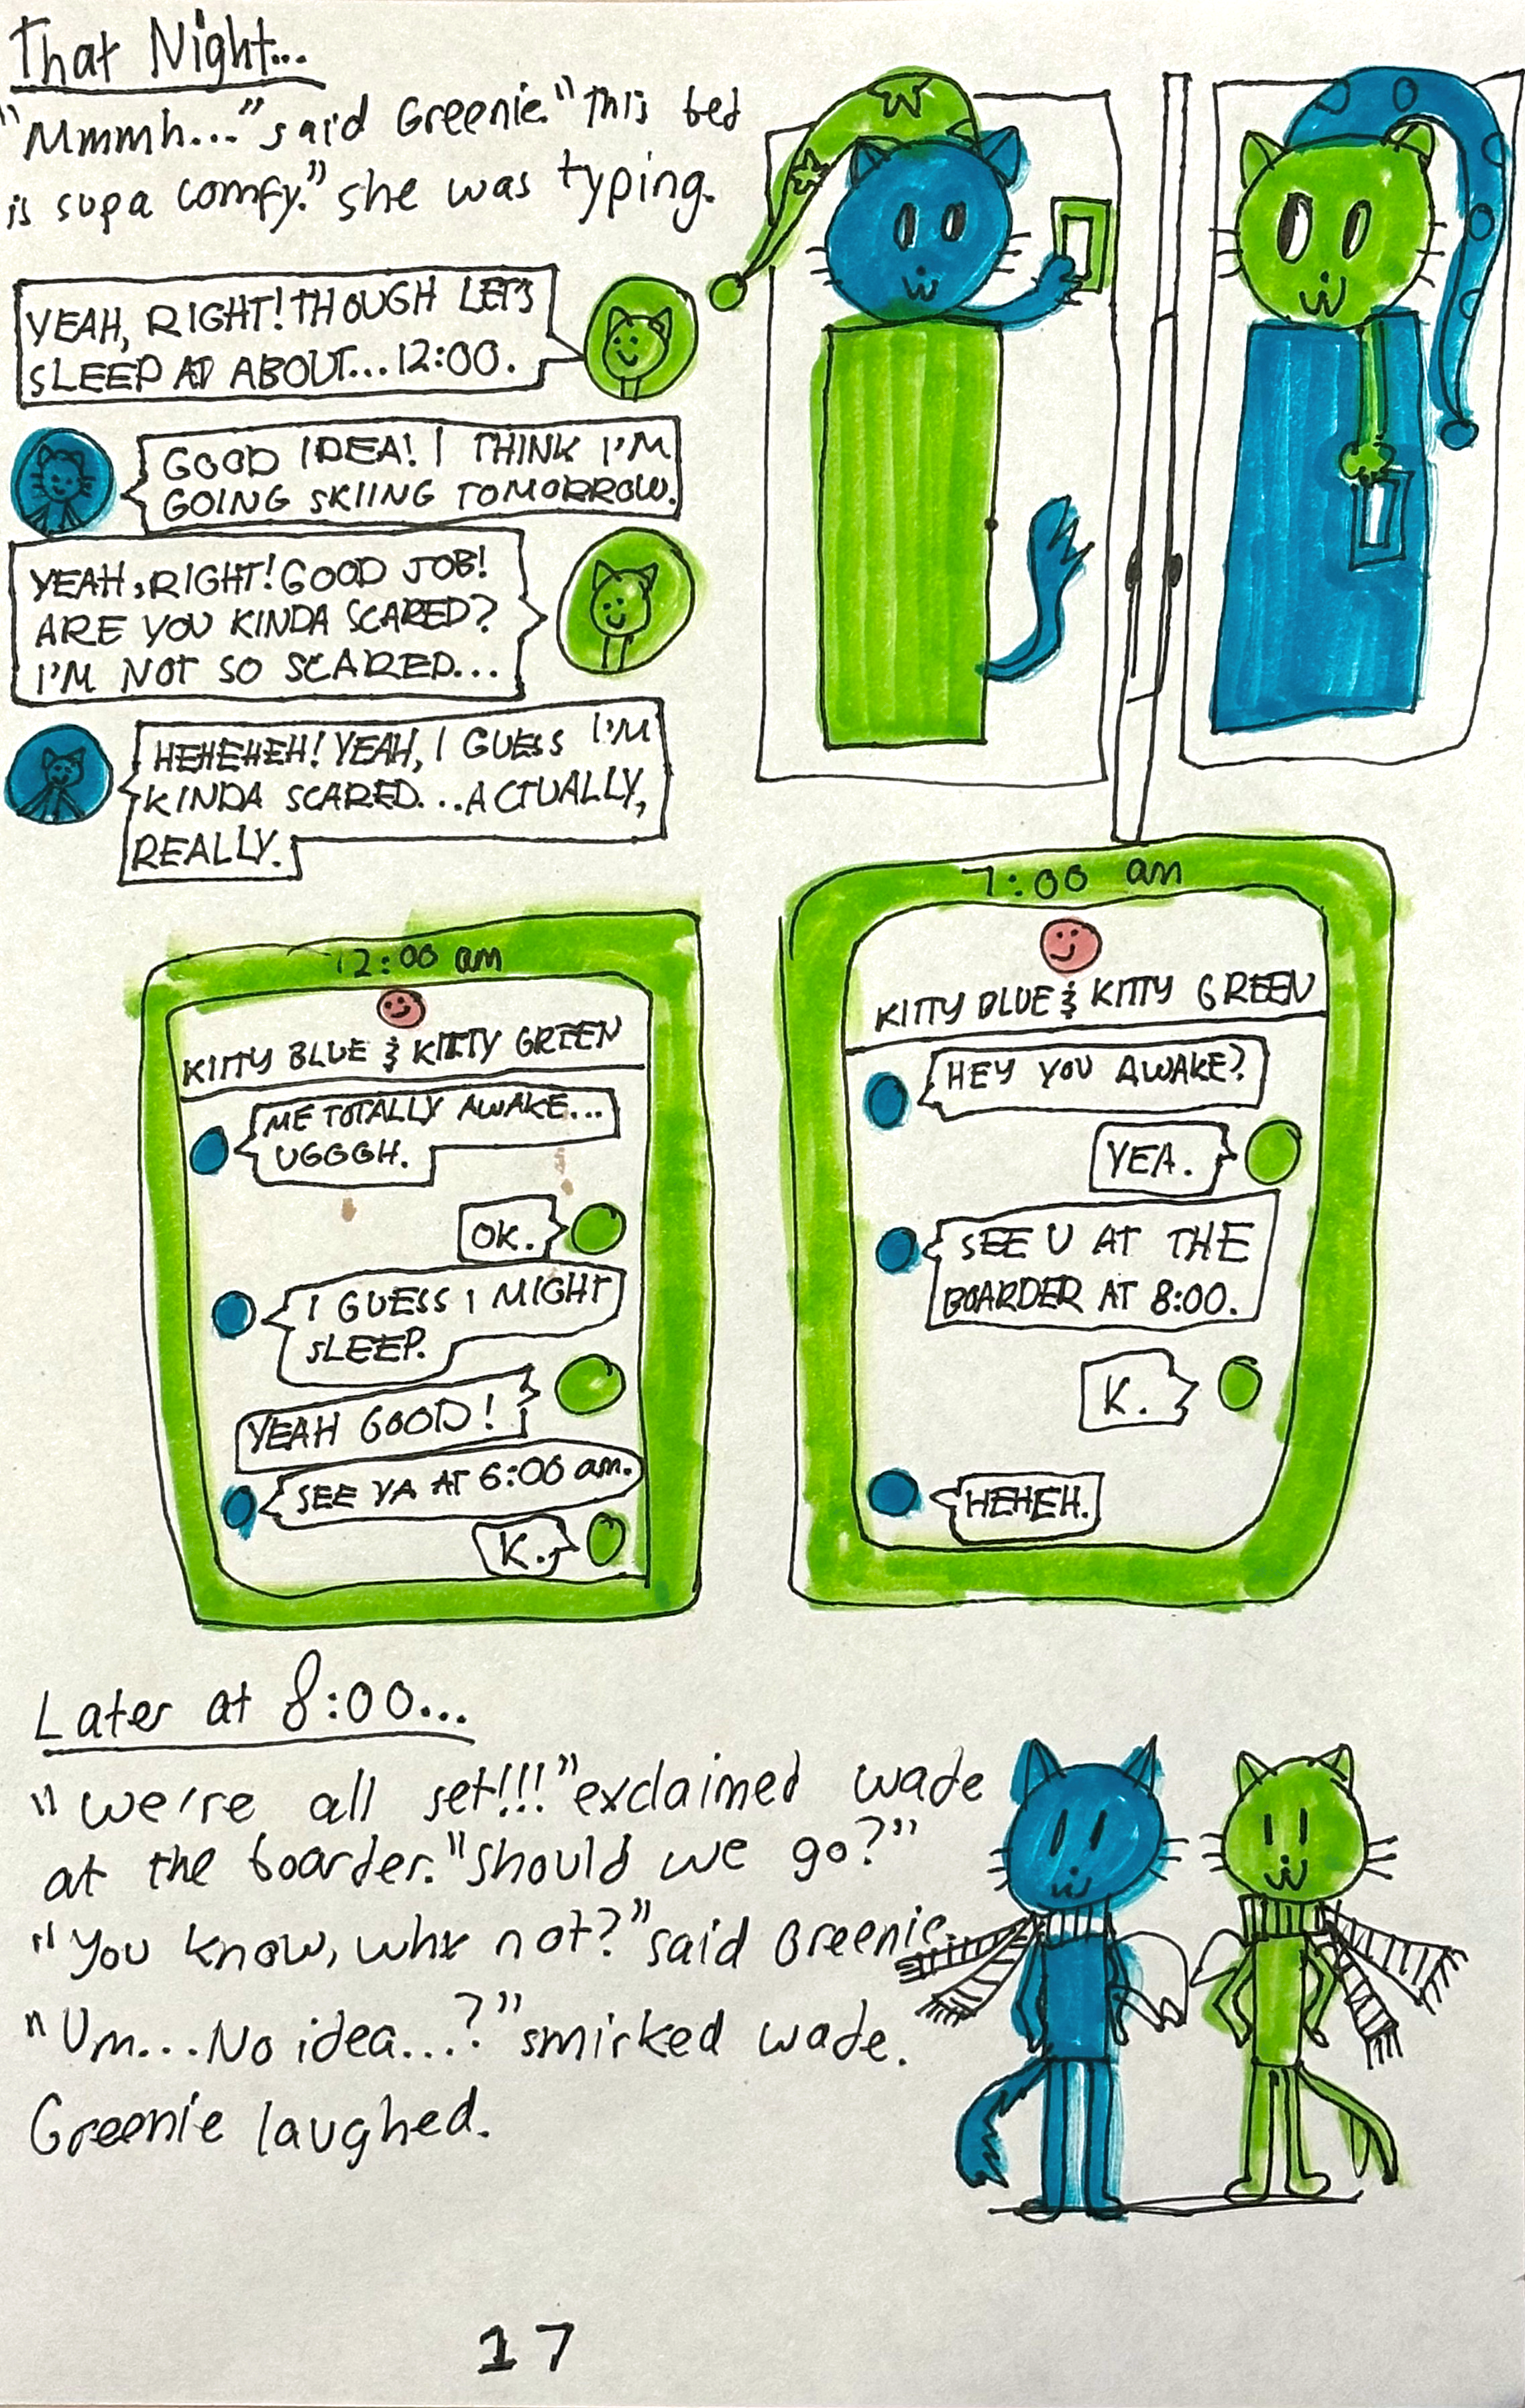 That Night...
"Mmmh..." said Greenie. "This bed
is supa comfy." she was typing.
YEAH, RIGHT! THOUGH LET'S
SLEEP AT ABOUT... 12:00.
GOOD IDEA! I THINK I'M
GOING SKIING TOMORROW.
YEAH, RIGHT! GOOD JOB!
ARE YOU KINDA SCARED?
I'M NOT SO SCARED...
HEHEHEH! YEAH, I GUESS I'M
KINDA SCARED... ACTUALLY,
REALLY.
12:00 am
KITTY BLUE & KITTY GREEN
ME TOTALLY AWAKE...
UGGGH.
OK.
I GUESS I MIGHT
SLEEP.
YEAH GOOD!
SEE YA AT 6:00 am.
K.
7:00 am
KITTY BLUE & KITTY GREEN
HEY YOU AWAKE?
YEA.
SEE U AT THE
BOARDER AT 8:00.
K.
HEHEH.
Later at 8:00...
"We're all set!!!" exclaimed wade
at the boarder. "Should we go?"
"You know, why not?" said Greenie.
"Um... No idea...?" smirked wade.
Greenie laughed.
17